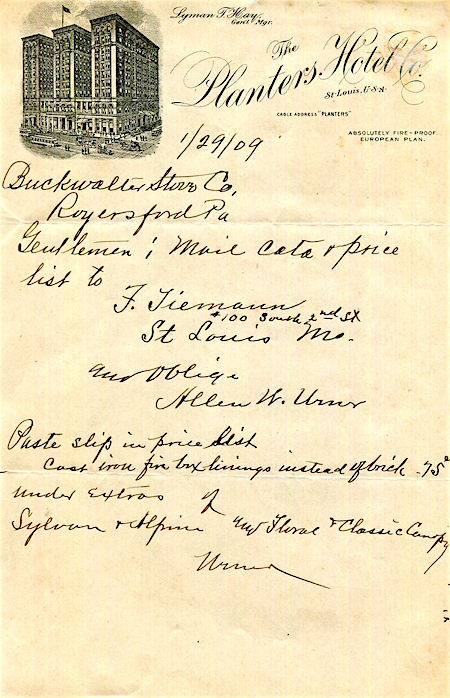 Lyman T. Hay
Gen'l Mgr.
The
Planters Hotel Co.
St. Louis, U.S.A.
CABLE ADDRESS "PLANTERS"
ABSOLUTELY FIRE-PROOF.
EUROPEAN PLAN.
1/29/09
Buckwalter Stove Co,
Royersford Pa
Gentlemen; Mail cata & price
list to
F. Tiemann
#100 South 2nd St
St Louis Mo.
and Oblige
Allen W. Urner
Paste slip in price list
Cast iron fire box linings instead of brick .75¢
under Extras of
Sylvan & Alpine and Floral & Classic Canopy
Urner